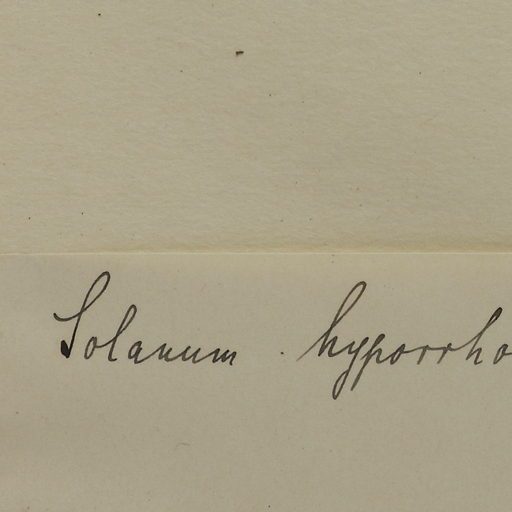 Solanum hyporrho